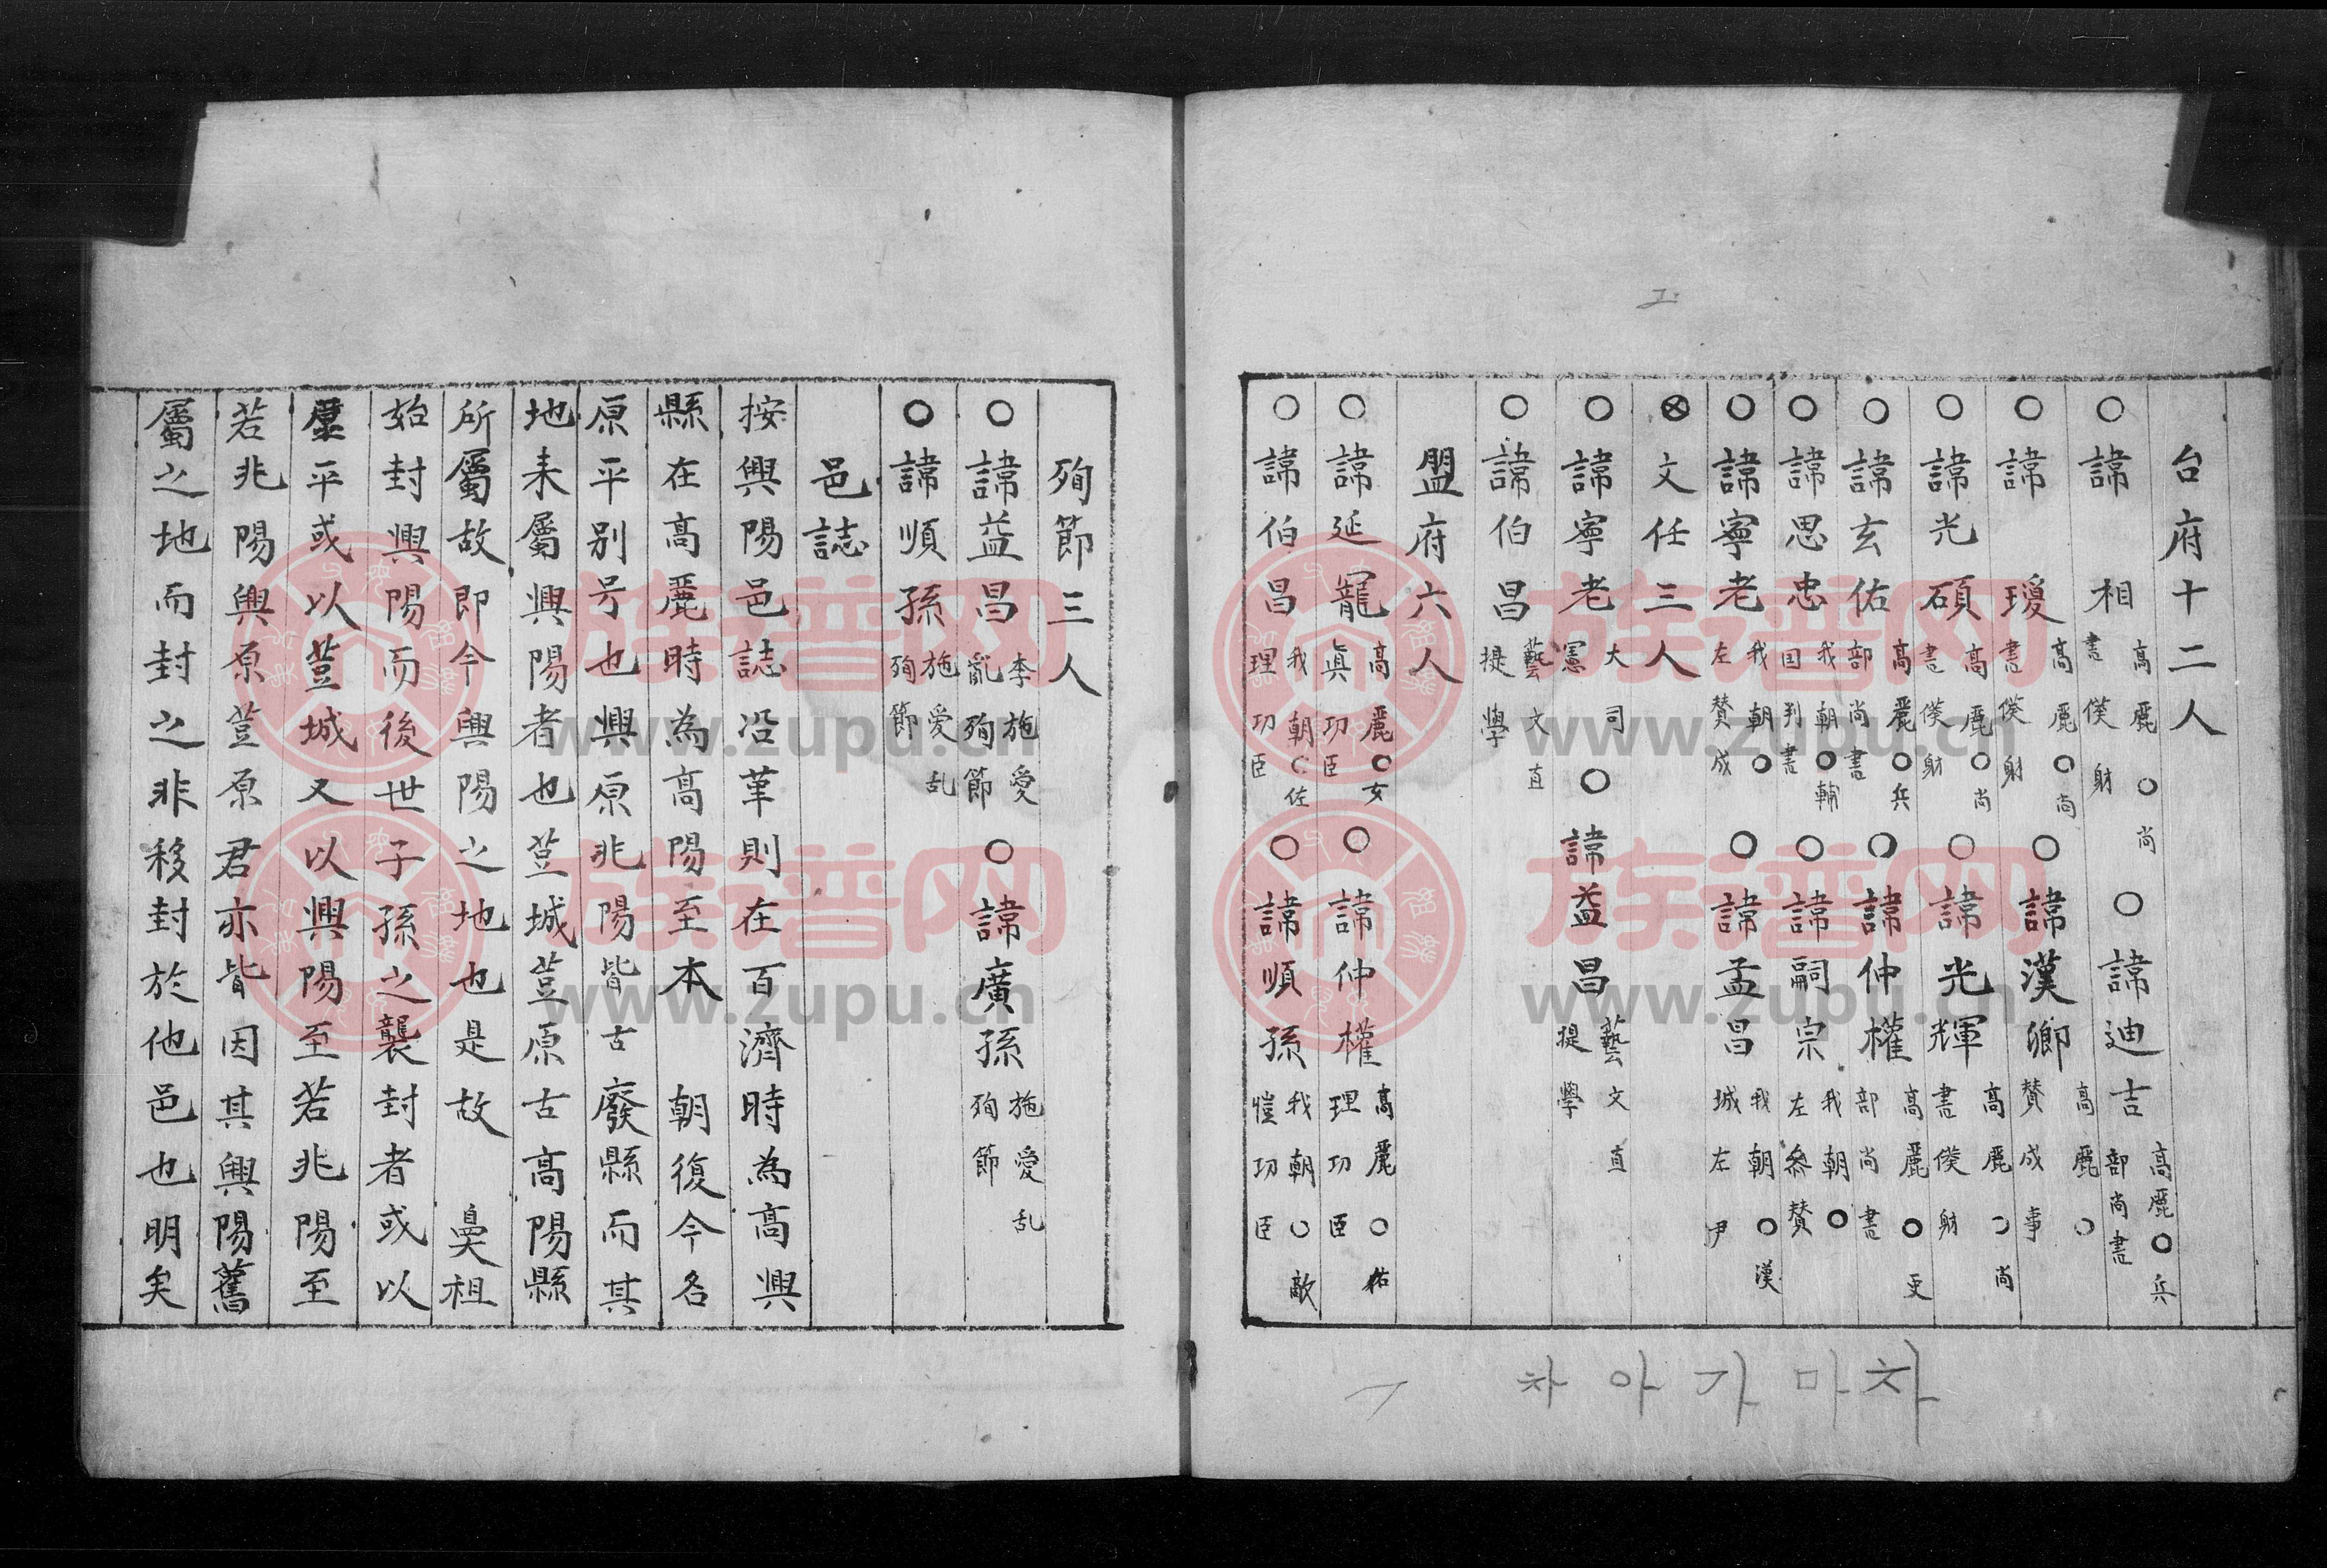 台府十二人
○諱相高麗○尚書僕射○諱迪吉高麗○兵部尚書
○諱瓊高麗○尚書僕射○諱漢卿高麗○贊成事
○諱光碩高麗○尚書僕射○諱光輝高麗○尚書僕射
○諱玄佑高麗○兵部尚書○諱仲權高麗○吏部尚書
○諱思忠我朝○輔国判書○諱嗣宗我朝○左叅贊
○諱寧老我朝○左贊成○諱孟昌我朝○漢城左尹
⊗文任三人
○諱寧老大司憲○諱益昌藝文直提學
○諱伯昌藝文直提學
盟府六人
○諱延寵高麗○女眞功臣○諱仲權高麗○佑理功臣
○諱伯昌我朝○佐理功臣○諱順孫我朝○敵愾功臣
殉節三人
○諱益昌李施愛亂殉節○諱廣孫施愛乱殉節
○諱順孫施愛乱殉節
邑誌
按興陽邑誌沿革則在百濟時為高興
縣在高麗時為高陽至本朝復今名
原平別号也興原兆陽皆古廢縣而其
地未屬興陽者也荳城荳原古高陽縣
所屬故即今興陽之地也是故鼻祖
始封興陽而後世子孫之襲封者或以
平或以荳城又以興陽至若兆陽至
若兆陽興原荳原君亦皆因其興陽舊
屬之地而封之非移封於他邑也明矣
차 아 가 마 차
族谱网
www.zupu.cn
族谱网
www.zupu.cn
族谱网
www.zupu.cn
族谱网
www.zupu.cn